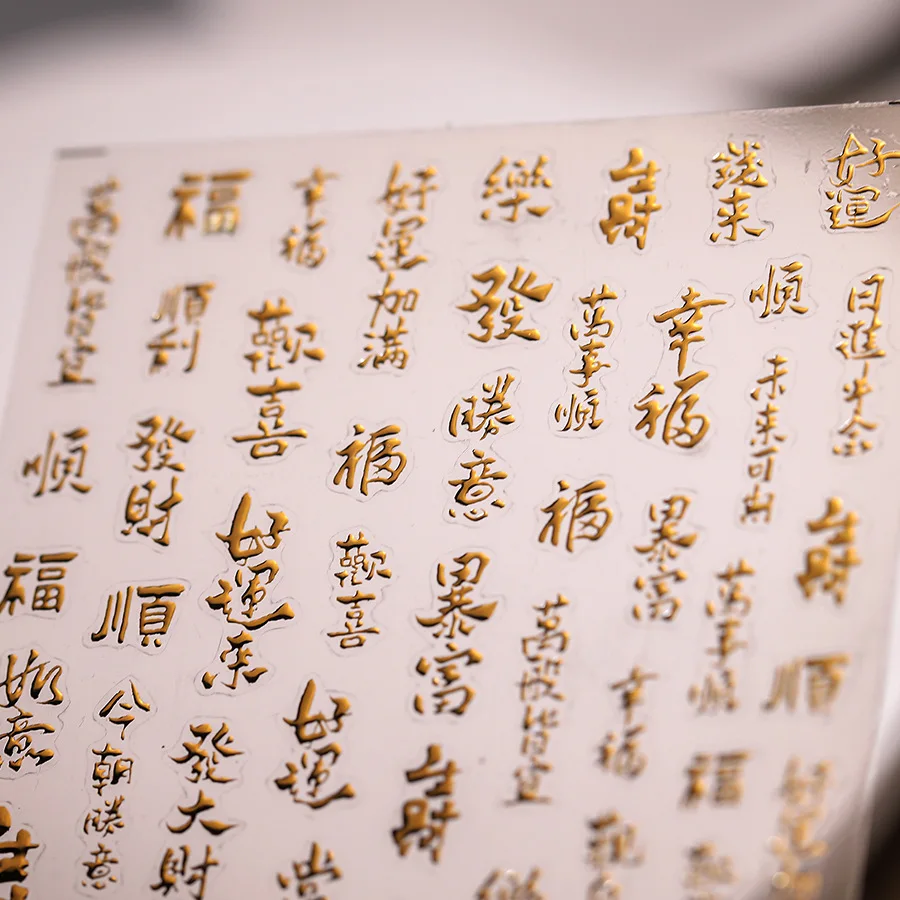 萬般皆宜
順
福
如意
福
順利
發財
順
今朝勝意
幸福
歡喜
好運來
發大財
好運加滿
福
歡喜
好運
樂
發
勝意
暴富
樂
萬事順
福
萬般皆宜
錢來
幸福
暴富
幸福
順
未來可期
萬事順
福
好運
日進斗金
順